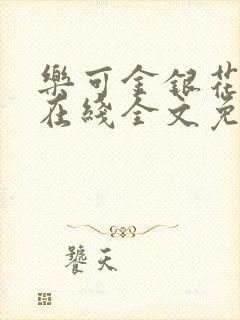 樂可金銀花
在綫全文免
饕天